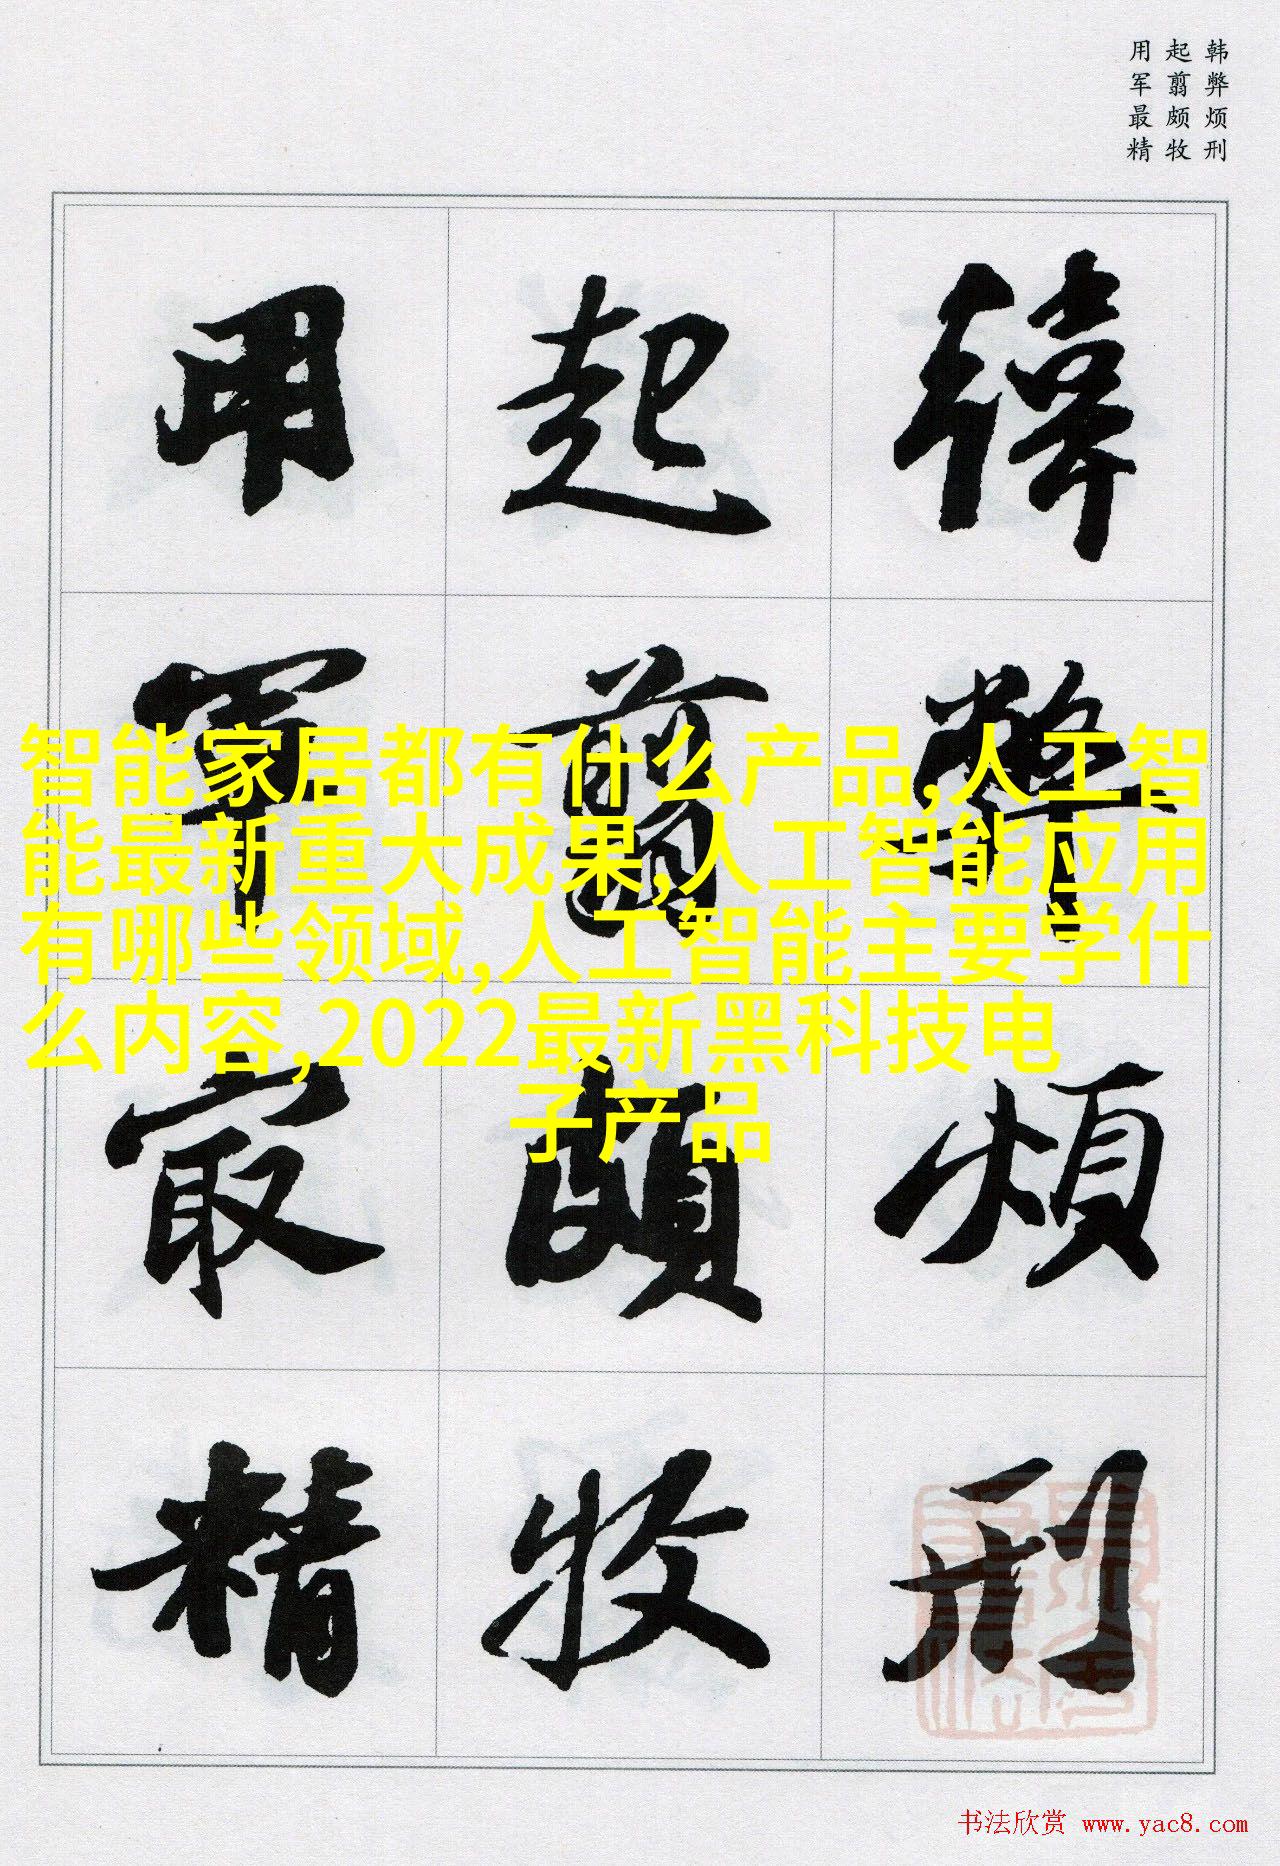 韩弊烦刑
起翦颇牧
用军最精
韩弊烦刑
起翦颇牧
用军最精
智能家居都有什么产品,人工智
能最新重大成果,人工智能应用
有哪些领域,人工智能主要学什
么内容,2022最新黑科技电
子产品
书法欣赏 www.yac8.com